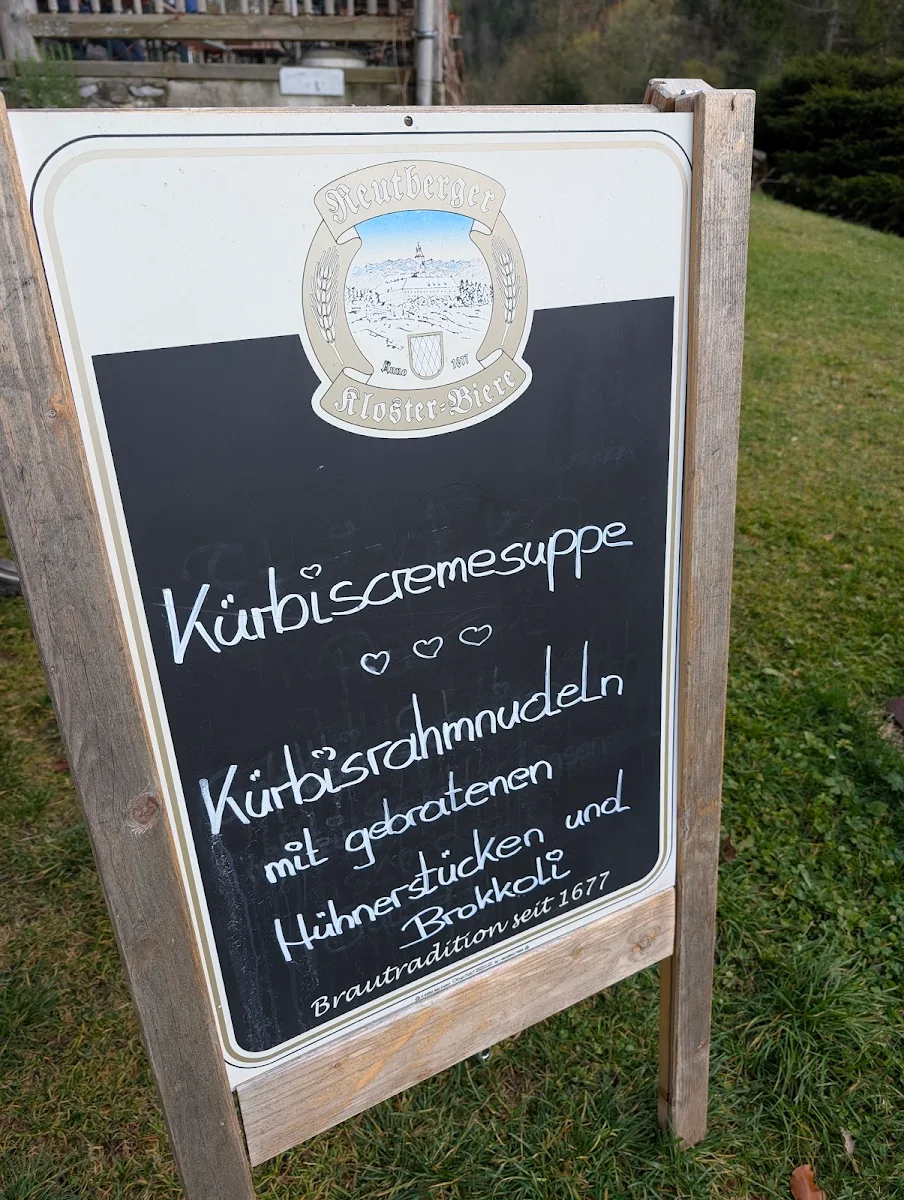 Reutberger
Anno 1677
Kloster-Biere
Kürbiscremesuppe
Kürbisrahmnudeln
mit gebratenen
Hühnerstücken und
Brokkoli
Brautradition seit 1677